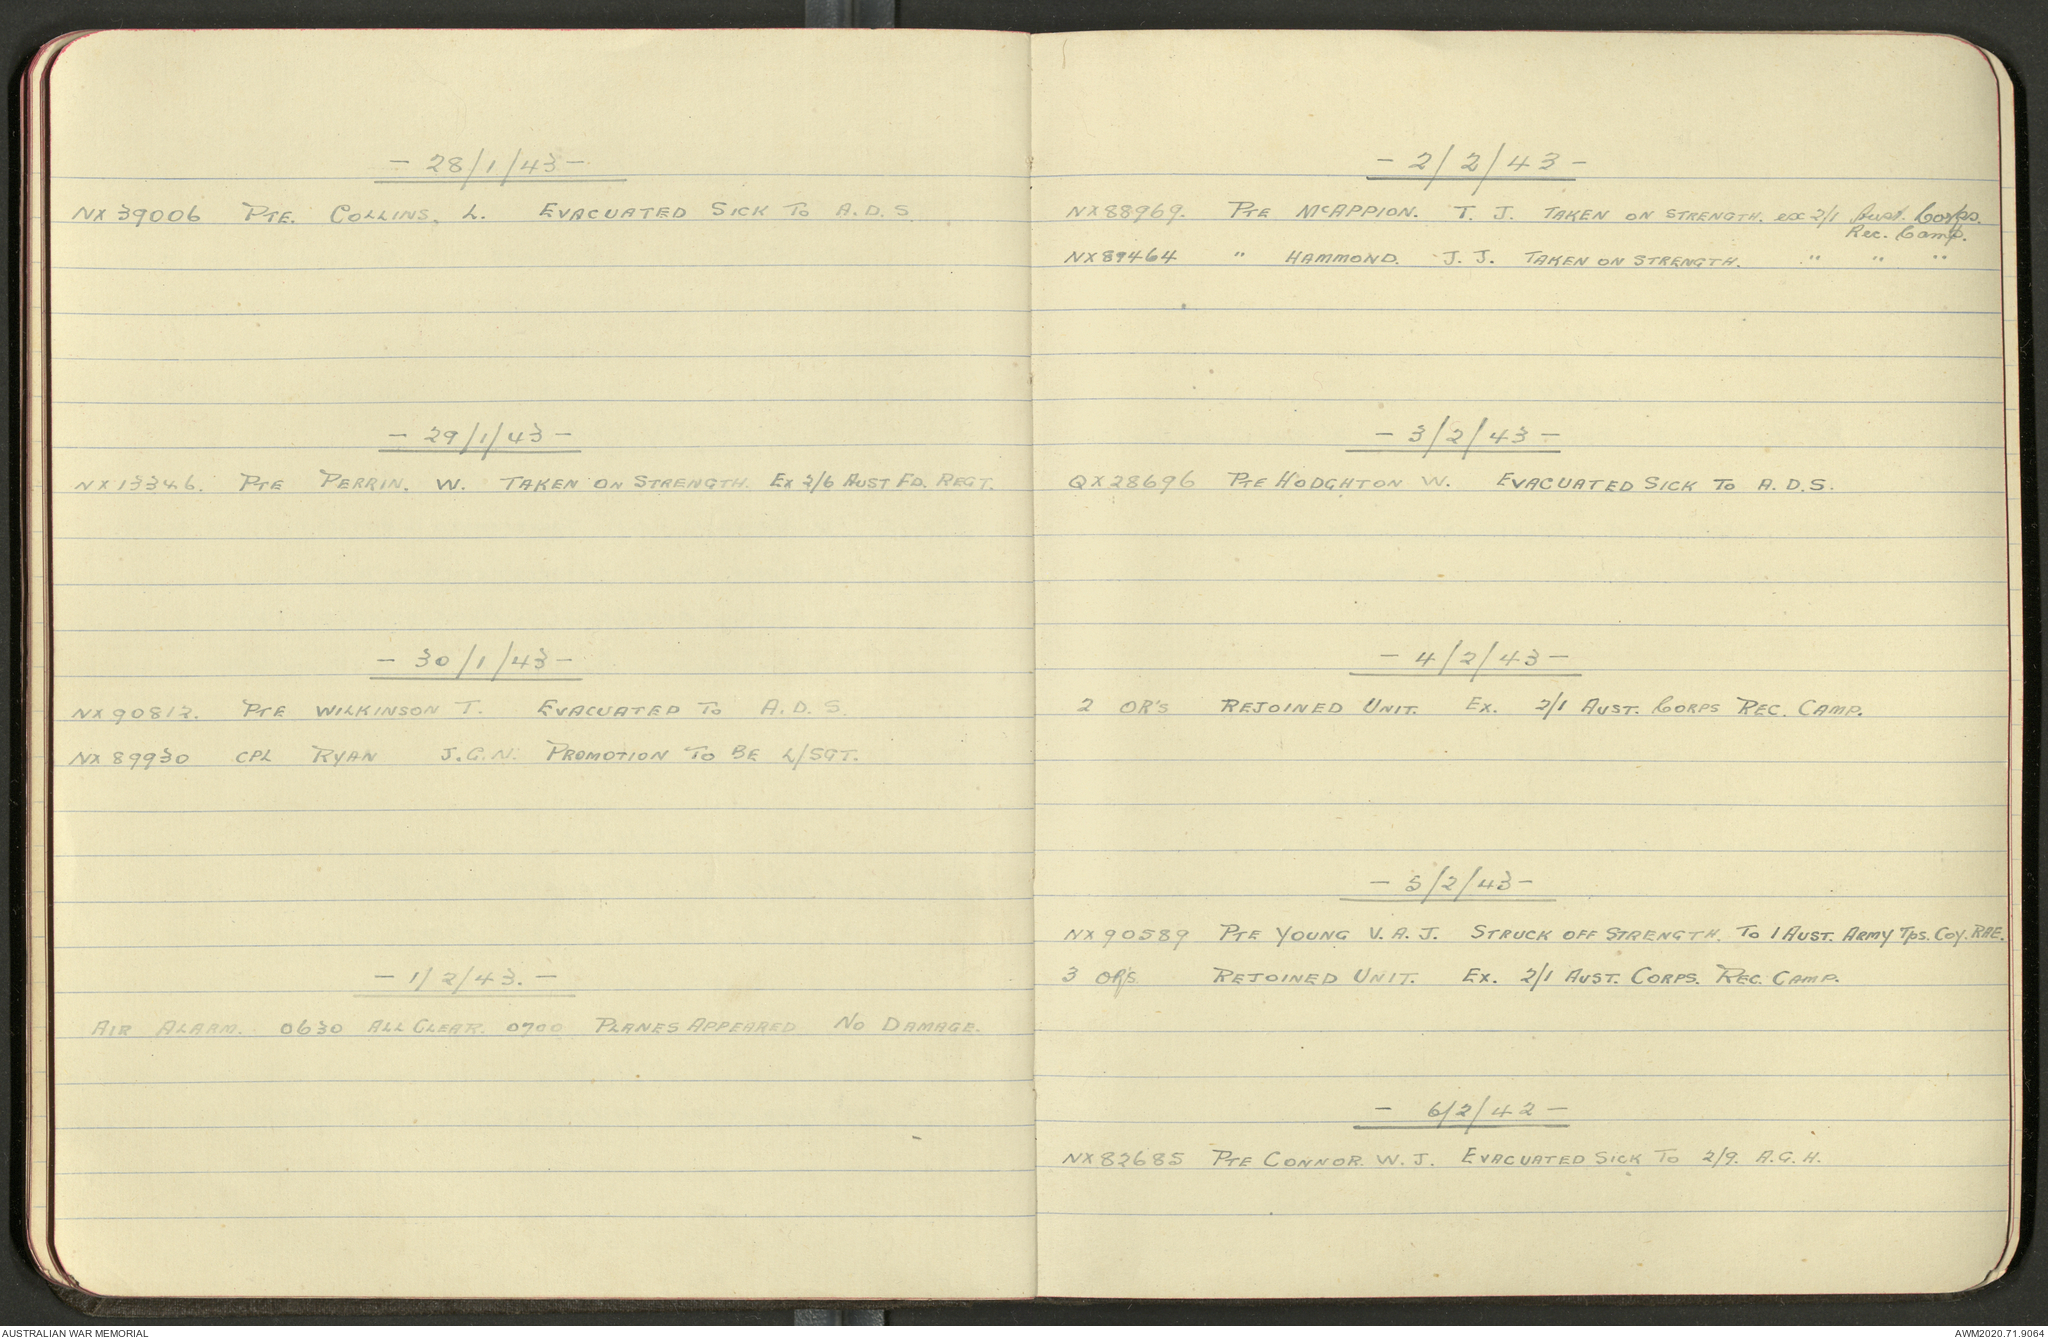 - 28/1/43 -
NX39006 PTE. COLLINS, L. EVACUATED SICK TO A.D.S.
- 29/1/43 -
NX13346. PTE PERRIN. W. TAKEN ON STRENGTH. EX 2/6 AUST FD. REGT.
- 30/1/43 -
NX90812. PTE WILKINSON T. EVACUATED TO A.D.S.
NX89930 CPL RYAN J.G.N. PROMOTION TO BE L/SGT.
- 1/2/43. -
AIR ALARM. 0630 ALL CLEAR. 0700 PLANES APPEARED NO DAMAGE.
- 2/2/43 -
NX88969. PTE McAPPION. T. J. TAKEN ON STRENGTH. ex 2/1 Aust. Corps.
Rec. Camp.
NX89464 " HAMMOND. J. J. TAKEN ON STRENGTH. " " "
- 3/2/43 -
QX28696 PTE HODGHTON W. EVACUATED SICK TO A.D.S.
- 4/2/43 -
2 OR's REJOINED UNIT. EX. 2/1 AUST. CORPS REC. CAMP.
- 5/2/43 -
NX90589 PTE YOUNG V.A.J. STRUCK OFF STRENGTH. TO 1 AUST. ARMY Tps. COY. RAE.
3 OR's REJOINED UNIT. EX. 2/1 AUST. CORPS. REC. CAMP.
- 6/2/42 -
NX82685 PTE CONNOR. W.J. EVACUATED SICK TO 2/9. A.G.H.
AUSTRALIAN WAR MEMORIAL
AWM2020.71.9064